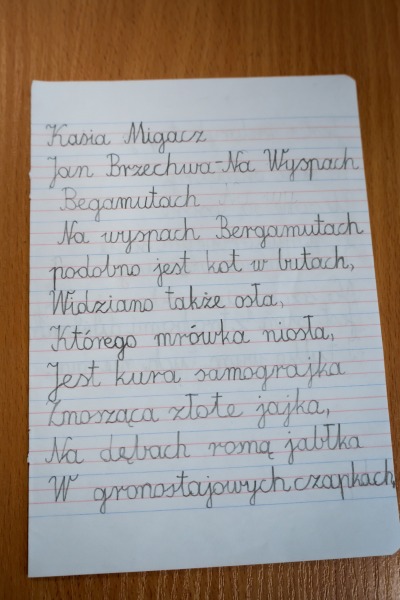 Kasia Migacz
Jan Brzechwa-Na Wyspach
Begamutach
Na wyspach Bergamutach
podobno jest kot w butach,
Widziano także osła,
Którego mrówka niosła,
Jest kura samograjka
Znosząca złote jajka,
Na dębach rosną jabłka
W gronostajowych czapkach,